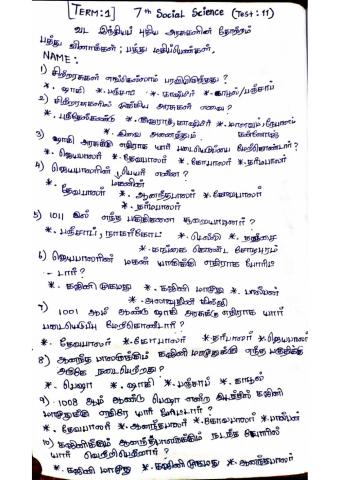 [TERM:1] 7th Social Science (Test: 11)
வட இந்தியப் புதிய அரசுகளின் தோற்றம்
பத்து வினாக்கள்; பத்து மதிப்பெண்கள்.
NAME:
1) சிற்றரசுகள் எங்கெல்லாம் பரவியிருந்தது?
*. ஷாகி *. பஞ்சாப் *. காஷ்மீர் *. காபுல்/பஞ்சாப்
2) சிற்றரசுகளில் முக்கிய அரசுகள் எவை?
*. குஜராத், காஷ்மீர் *. மாளவம், நேபாளம்
*. இவை அனைத்தும் கன்னோஜ்
3) ஷாகி அரசுக்கு எதிராக யார் படையெடுப்பை மேற்கொண்டார்?
*. ஜெயபாலர் *. தேவபாலர் *. கோபாலர் *. தர்மபாலர்
4) ஜெயபாலரின் பெயர் என்ன?
மகனின்
* தேவபாலர் *. ஆனந்தபாலர் *. கோபாலர்
*. தர்மபாலர்
5) 1011 இல் எந்த பகுதிகளை சூறையாடினார்?
*. பஞ்சாப், நாகர்கோட் *. டெல்லி *. தஞ்சை
*. கங்கை கொண்ட சோழபுரம்
6) ஜெயபாலரின் மகன் யாருக்கு எதிராக போரிட்
- டார்?
*. கஜினி முகமது *. கஜினி மாமூது *. பாலீபன்
*. அலாவுதீன் கில்ஜி
7) 1001 ஆம் ஆண்டு ஷாகி அரசுக்கு எதிராக யார்
படையெடுப்பு மேற்கொண்டார்?
*. தேவபாலர் *. கோபாலர் *. தர்மபாலர் *. ஜெயபாலர்
8) ஆனந்த பாலருக்கும் கஜினி மாமூதுக்கு எந்த பகுதிக்கு
அருகே நடைபெற்றது?
*. பெஷா *. ஷாகி *. பஞ்சாப் *. காபுல்
9) 1008 ஆம் ஆண்டு பெஷா என்ற இடத்தில் கஜினி
மாமூதுக்கு எதிரே யார் போரிட்டார்?
*. தேவபாலர் *. ஆனந்தபாலர் *. கோபாலர் *. பாலீபன்
10) கஜினிக்கும் ஆனந்தபாலருக்கும் நடந்த போரில்
யார் வெற்றிபெற்றார்?
*. கஜினி மாமூது *. கஜினி முகமது *. ஆனந்தபாலர்